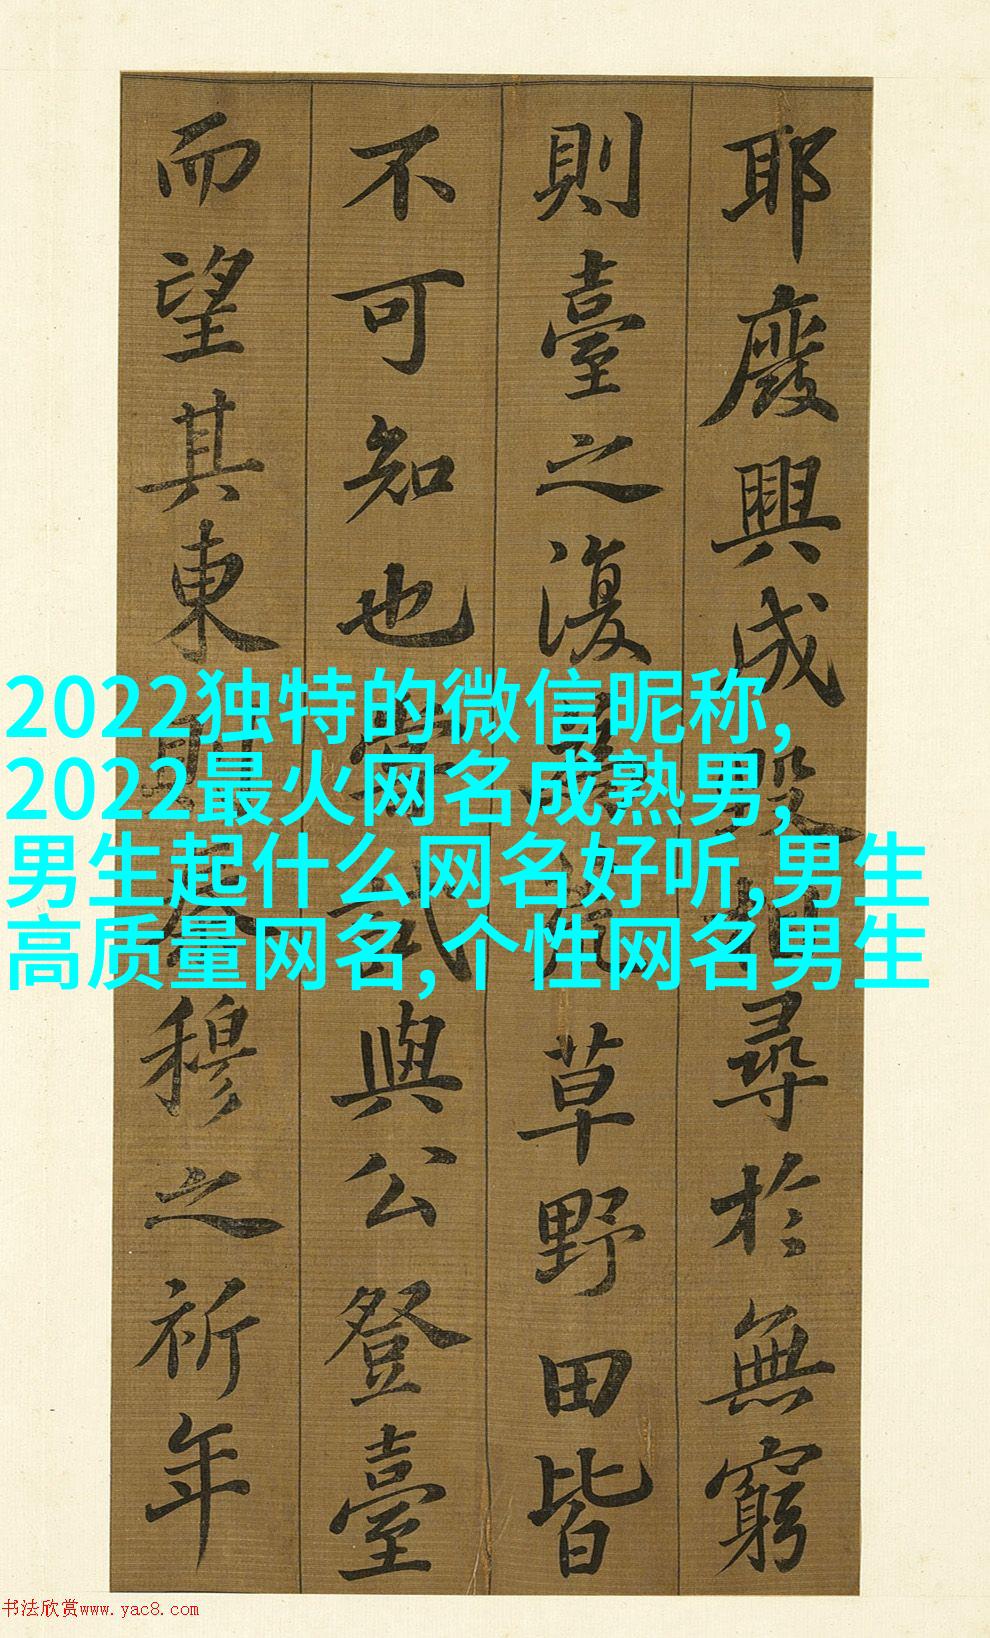 耶廢興成毀相尋於無窮
則臺之復為荒草野田皆
不可知也嘗試與公登臺
而望其東則秦穆之祈年
2022独特的微信昵称,
2022最火网名成熟男,
男生起什么网名好听,男生
高质量网名,个性网名男生
书法欣赏www.yac8.com